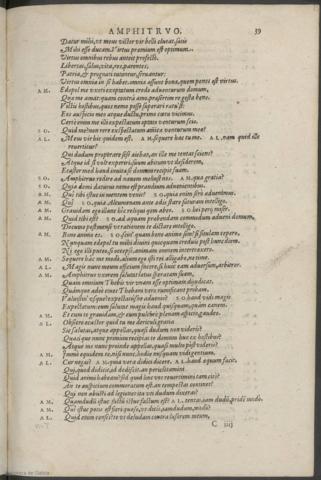 AMPHITRVO. 39
Datur mihi, ut meus victor vir belli clueat. satis
Mihi esse ducam. Virtus præmium est optimum.
Virtus omnibus rebus anteit profectò.
Libertas, salus, vita, res, parentes,
Patria, & prognati tutantur, seruantur:
Virtus omnia in se habet. omnia assunt bona, quem penes est virtus.
A M. Edepol me uxori exoptatum credo aduenturum domum,
Quæ me amat: quam contrà amo. præsertim re gesta bene.
Victis hostibus, quos nemo posse superari ratu'st:
Eos auspicio meo atque ductu, primo cœtu vicimus.
Certè enim me illi expectatum optato venturum scio.
S O. Quid me non rere expectatum amicæ venturum meæ?
A L. Meus vir hic quidem est. A M. sequere hac tu me. A L. nam quid ille
reuertitur?
Qui dudum properare sese aiebat, an ille me tentat sciens?
Atque id se vult experiri, suum abitum ut desiderem,
Ecastor med haud inuita se domum recipit suam.
S O. Amphitruo redire ad nauem meliust nos. A M. qua gratia?
S O. Quia domi daturus nemo est prandium aduenientibus.
A M. Qui tibi istuc in mentem venit? S O. quia enim serò aduenimus.
A M. Qui? S O. quia Alcumenam ante ædis stare saturam intellego.
A M. Grauidam ego illanc hic reliqui quom abeo. S O. hei perij miser.
A M. Quid tibi est? S O. ad aquam præbendam commodum adueni domum,
Decumo post mense ut rationem te dictare intellego.
A M. Bono animo es. S O. scin' quam bono animo sim? si situlam cepero,
Nunquam edepol tu mihi diuini quicquam creduis post hunc diem,
Ni ego illi puteo, si occepso, animam omnem intertraxero.
A M. Sequere hac me modò, alium ego isti rei allegabo, ne time.
A L. Magis nunc meum officium facere, si huic eam aduersum, arbitror.
A M. Amphitruo uxorem salutat lætus speratam suam,
Quam omnium Thebis vir unam esse optimam dijudicat,
Quamque adeò ciues Thebani verò rumificant probam.
Valuistin' usque? expectatúsne aduenio? S O. haud vidi magis
Expectatum. eum salutat magis haud quisquam, quàm canem.
A M. Et cum te grauidam, & cum pulchrè plenam aspicio, gaudeo.
A L. Obsecro ecastor quid tu me deridiculi gratia
Sic salutas, atque appellas, quasi dudum non videris?
Quasi qui nunc primum recipias te domum huc ex hostibus?
Atque me nunc proinde appellas, quasi multo post videris?
A M. Immò equidem te, nisi nunc, hodie nusquam vidi gentium.
A L. Cur negas? A M. quia vera didici dicere. A L. haud æquum facit,
Qui, quod didicit, id dediscit. an periclitamini
Quid animi habeam? sed quid huc vos reuortimini tam citò?
An te auspicium commoratum est, an tempestas continet?
Qui non abijsti ad legiones ita uti dudum dixeras?
A M. Quamdudum istuc factum est? A L. tentas. iam dudum, pridè modò.
A M. Qui istuc potis est fieri quæso, ut dicis, iamdudum, modò?
A L. Quid enim censes? te ut deludam contra lusorem meum,
C iiij